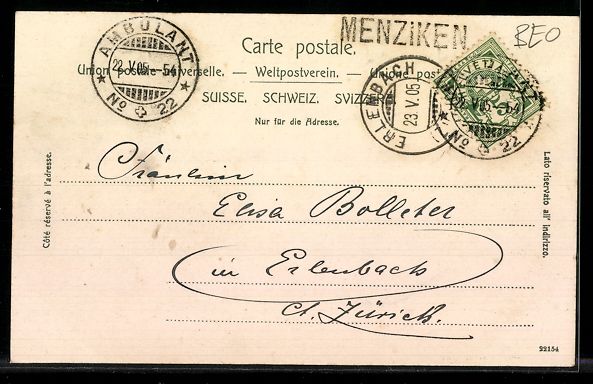 MENZiKEN
BEO
AMBULANT
22.V.05 - 54
No 22
Carte postale.
Union postale universelle. — Weltpostverein. — Unione postale
SUISSE. SCHWEIZ. SVIZZERA
Nur für die Adresse.
ERLENBACH
23.V.05
HELVETIA
5
AMBULANT
22.V.05 - 54
No 22
Côté réservé à l'adresse.
Lato riservato all' indirizzo.
Fräulein
Elisa Bolleter
in Erlenbach
Ct. Zürich.
22154